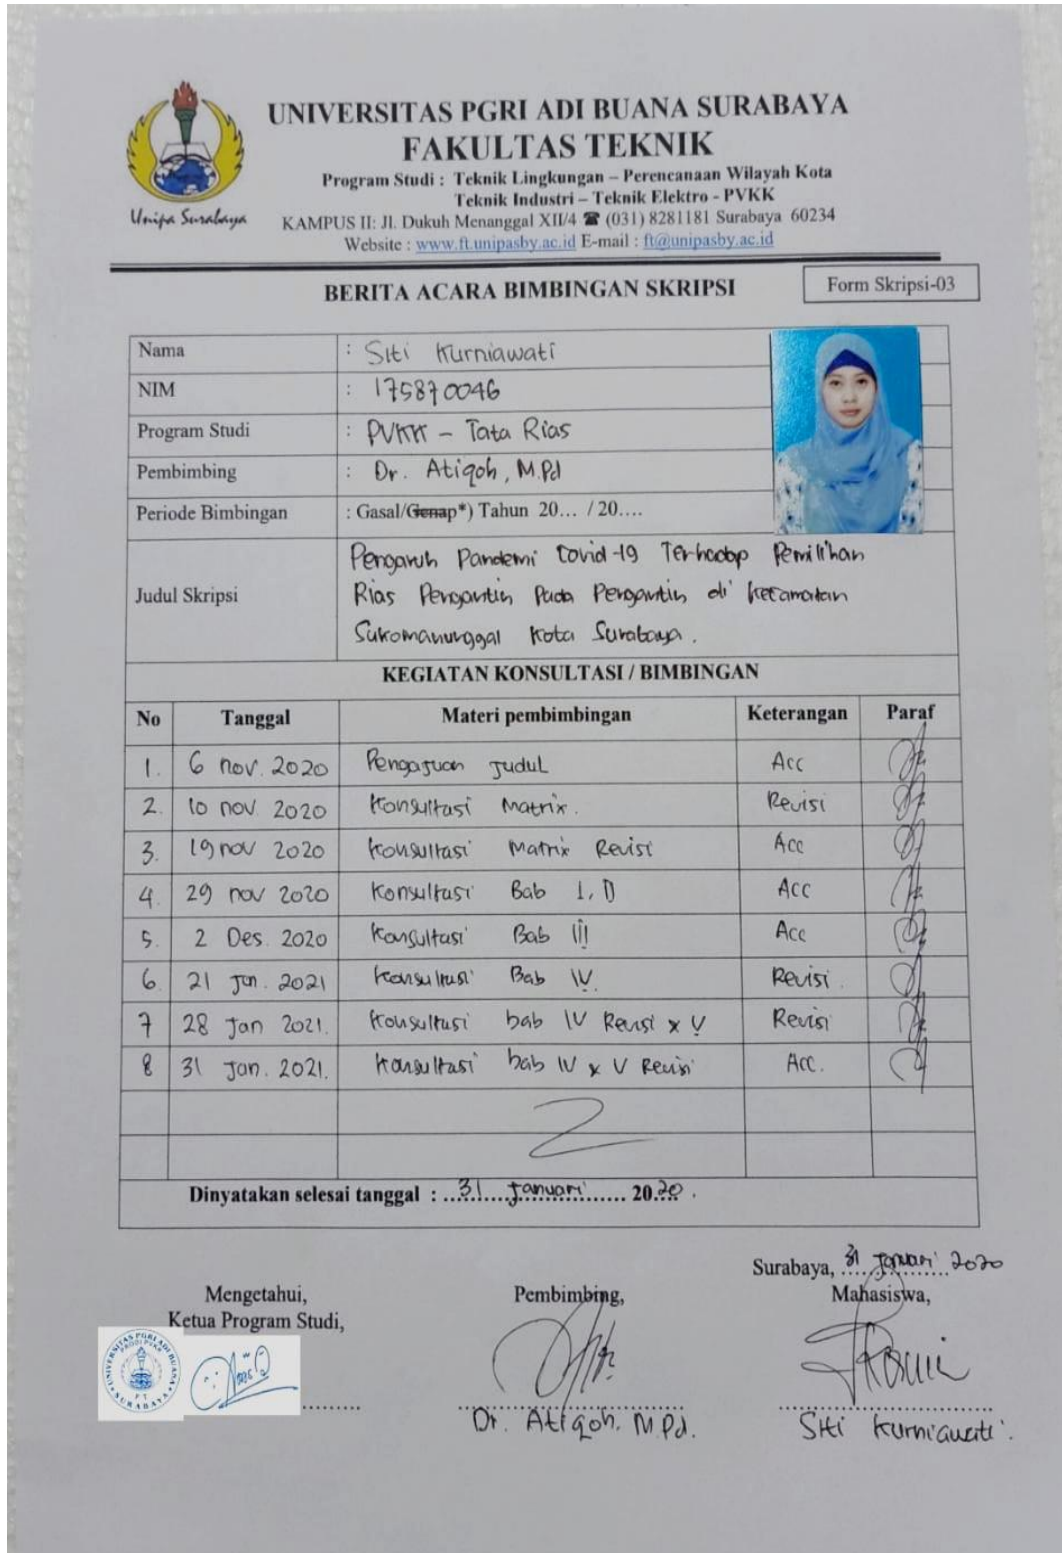 UNIVERSITAS PGRI ADI BUANA SURABAYA
FAKULTAS TEKNIK
Program Studi : Teknik Lingkungan – Perencanaan Wilayah Kota
Teknik Industri – Teknik Elektro - PVKK
Unipa Surabaya
KAMPUS II: Jl. Dukuh Menanggal XII/4 ☎ (031) 8281181 Surabaya 60234
Website : www.ft.unipasby.ac.id E-mail : ft@unipasby.ac.id
BERITA ACARA BIMBINGAN SKRIPSI
Form Skripsi-03
Nama : Siti Kurniawati
NIM : 175870046
Program Studi : PVKK – Tata Rias
Pembimbing : Dr. Atiqoh, M.Pd
Periode Bimbingan : Gasal/Genap*) Tahun 20... / 20....
Judul Skripsi
Pengaruh Pandemi Covid-19 Terhadap Pemilihan
Rias Pengantin Pada Pengantin di Kecamatan
Sukomanunggal Kota Surabaya.
KEGIATAN KONSULTASI / BIMBINGAN
No Tanggal Materi pembimbingan Keterangan Paraf
1. 6 nov. 2020 Pengajuan Judul Acc
2. 10 nov 2020 Konsultasi Matrix. Revisi
3. 19 nov 2020 Konsultasi Matrix Revisi Acc
4. 29 nov 2020 Konsultasi Bab I, II Acc
5. 2 Des. 2020 Konsultasi Bab III Acc
6. 21 Jan. 2021 Konsultasi Bab IV. Revisi.
7 28 Jan 2021. Konsultasi bab IV Revisi x V Revisi
8 31 Jan. 2021. Konsultasi bab IV x V Revisi Acc.
Dinyatakan selesai tanggal : ...31....Januari...... 20.20.
Surabaya, 31 Januari 2020
Mengetahui,
Ketua Program Studi,
Pembimbing,
Mahasiswa,
UNIVERSITAS PGRI ADI BUANA
PRODI PVKK
FT
SURABAYA
Dr. Atiqoh. M.Pd.
Siti Kurniawati.